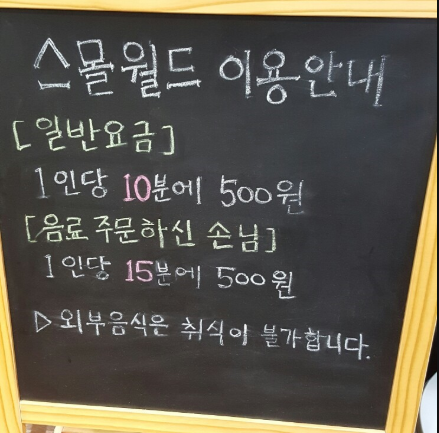 스몰월드 이용안내
[일반요금]
1인당 10분에 500원
[음료 주문하신 손님]
1인당 15분에 500원
▷ 외부음식은 취식이 불가합니다.